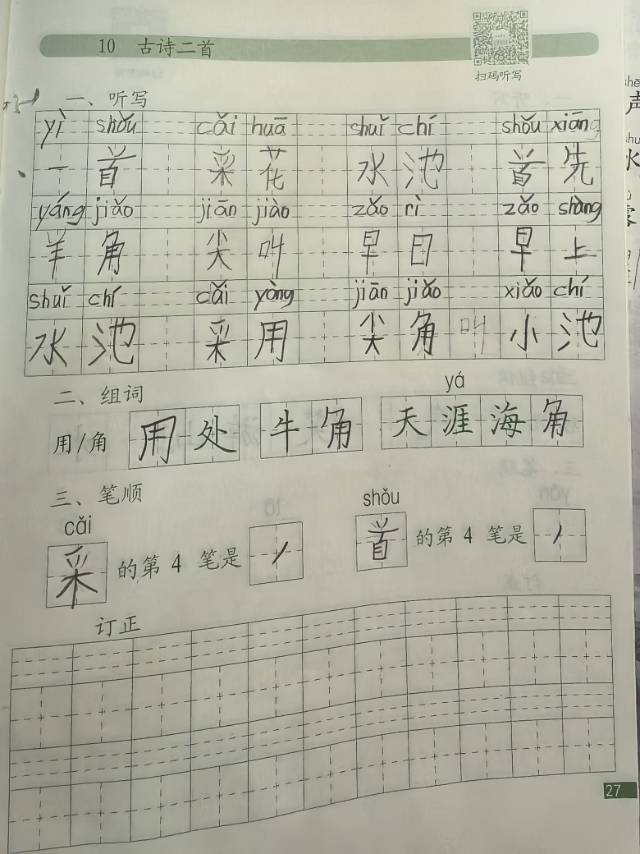 10 古诗二首
扫码听写
一、听写
yì shǒu cǎi huā shuǐ chí shǒu xiāng
一首 采花 水池 首先
yáng jiǎo jiān jiào zǎo rì zǎo shàng
羊角 尖叫 早日 早上
shuǐ chí cǎi yòng jiān jiǎo xiǎo chí
水池 采用 尖角 叫 小池
二、组词
yá
用/角 用处 牛角 天涯海角
三、笔顺
cǎi shǒu
采的第4笔是丿 首的第4笔是丿
订正
27